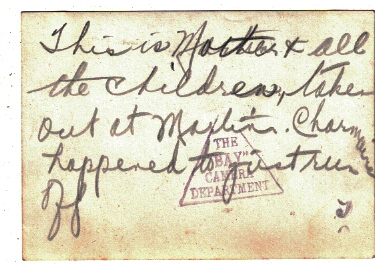 This is Mother & all
the children, taken
out at Maylin's. Charmaine
happened to just run
off
THE
"BAY"
CAMERA
DEPARTMENT